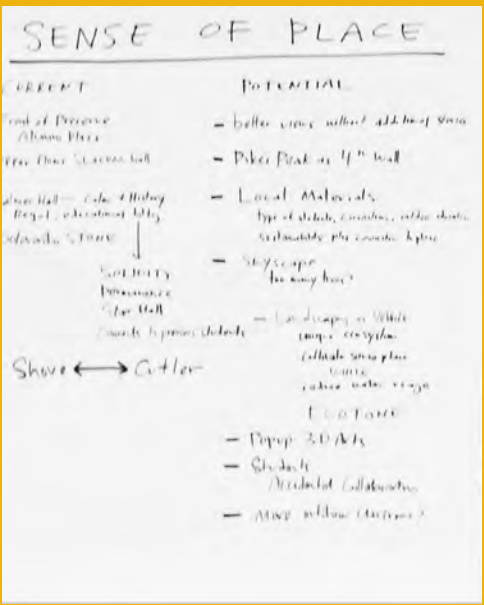 SENSE OF PLACE
CURRENT
Front of Preserve
Alumni Plaza
Palmer Hall — Color & History
Regal, educational bldg
Colorado STONE
SOLIDITY
Permanence
Slye Hall
Connects to previous students
Shove ⟷ Cutler
POTENTIAL
— better views without addition of
— Pikes Peak as 4th wall
— Local Materials
sustainability plus connection to place
— Skyscape
too many trees?
— Landscaping as
unique ecosystem
Cultivate sense place
reduce water usage
ECOTONE
— Popup 3D Arts
— Students
Accidental Collaboration
— More outdoor classrooms?